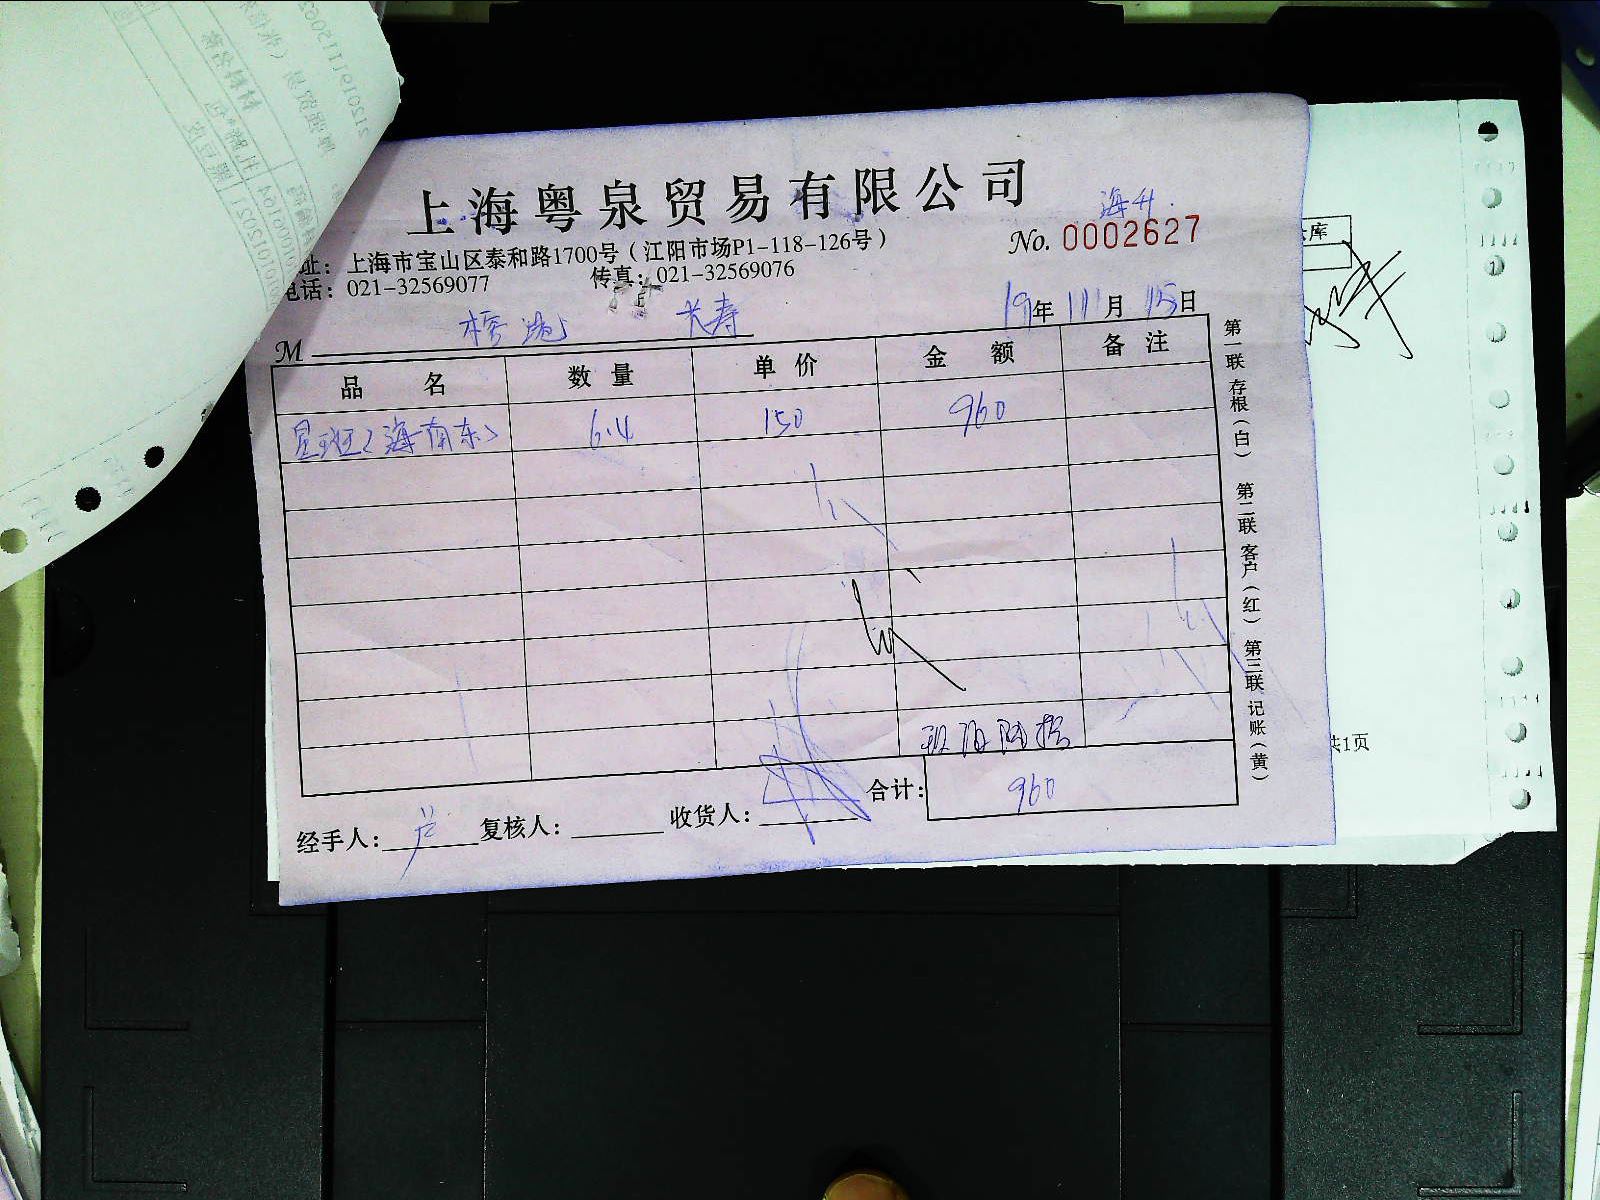 上海粤泉贸易有限公司
海升
No. 0002627
址：上海市宝山区泰和路1700号（江阳市场P1-118-126号）
电话：021-32569077 传真：021-32569076
19年 11月 15日
M 长寿
品 名 数 量 单 价 金 额 备 注
星斑（海南东） 6.4 150 960
玖佰陆拾
合计： 960
经手人： 卢 复核人： 收货人：
第一联 存根（白） 第二联 客户（红） 第三联 记账（黄）
库
共1页